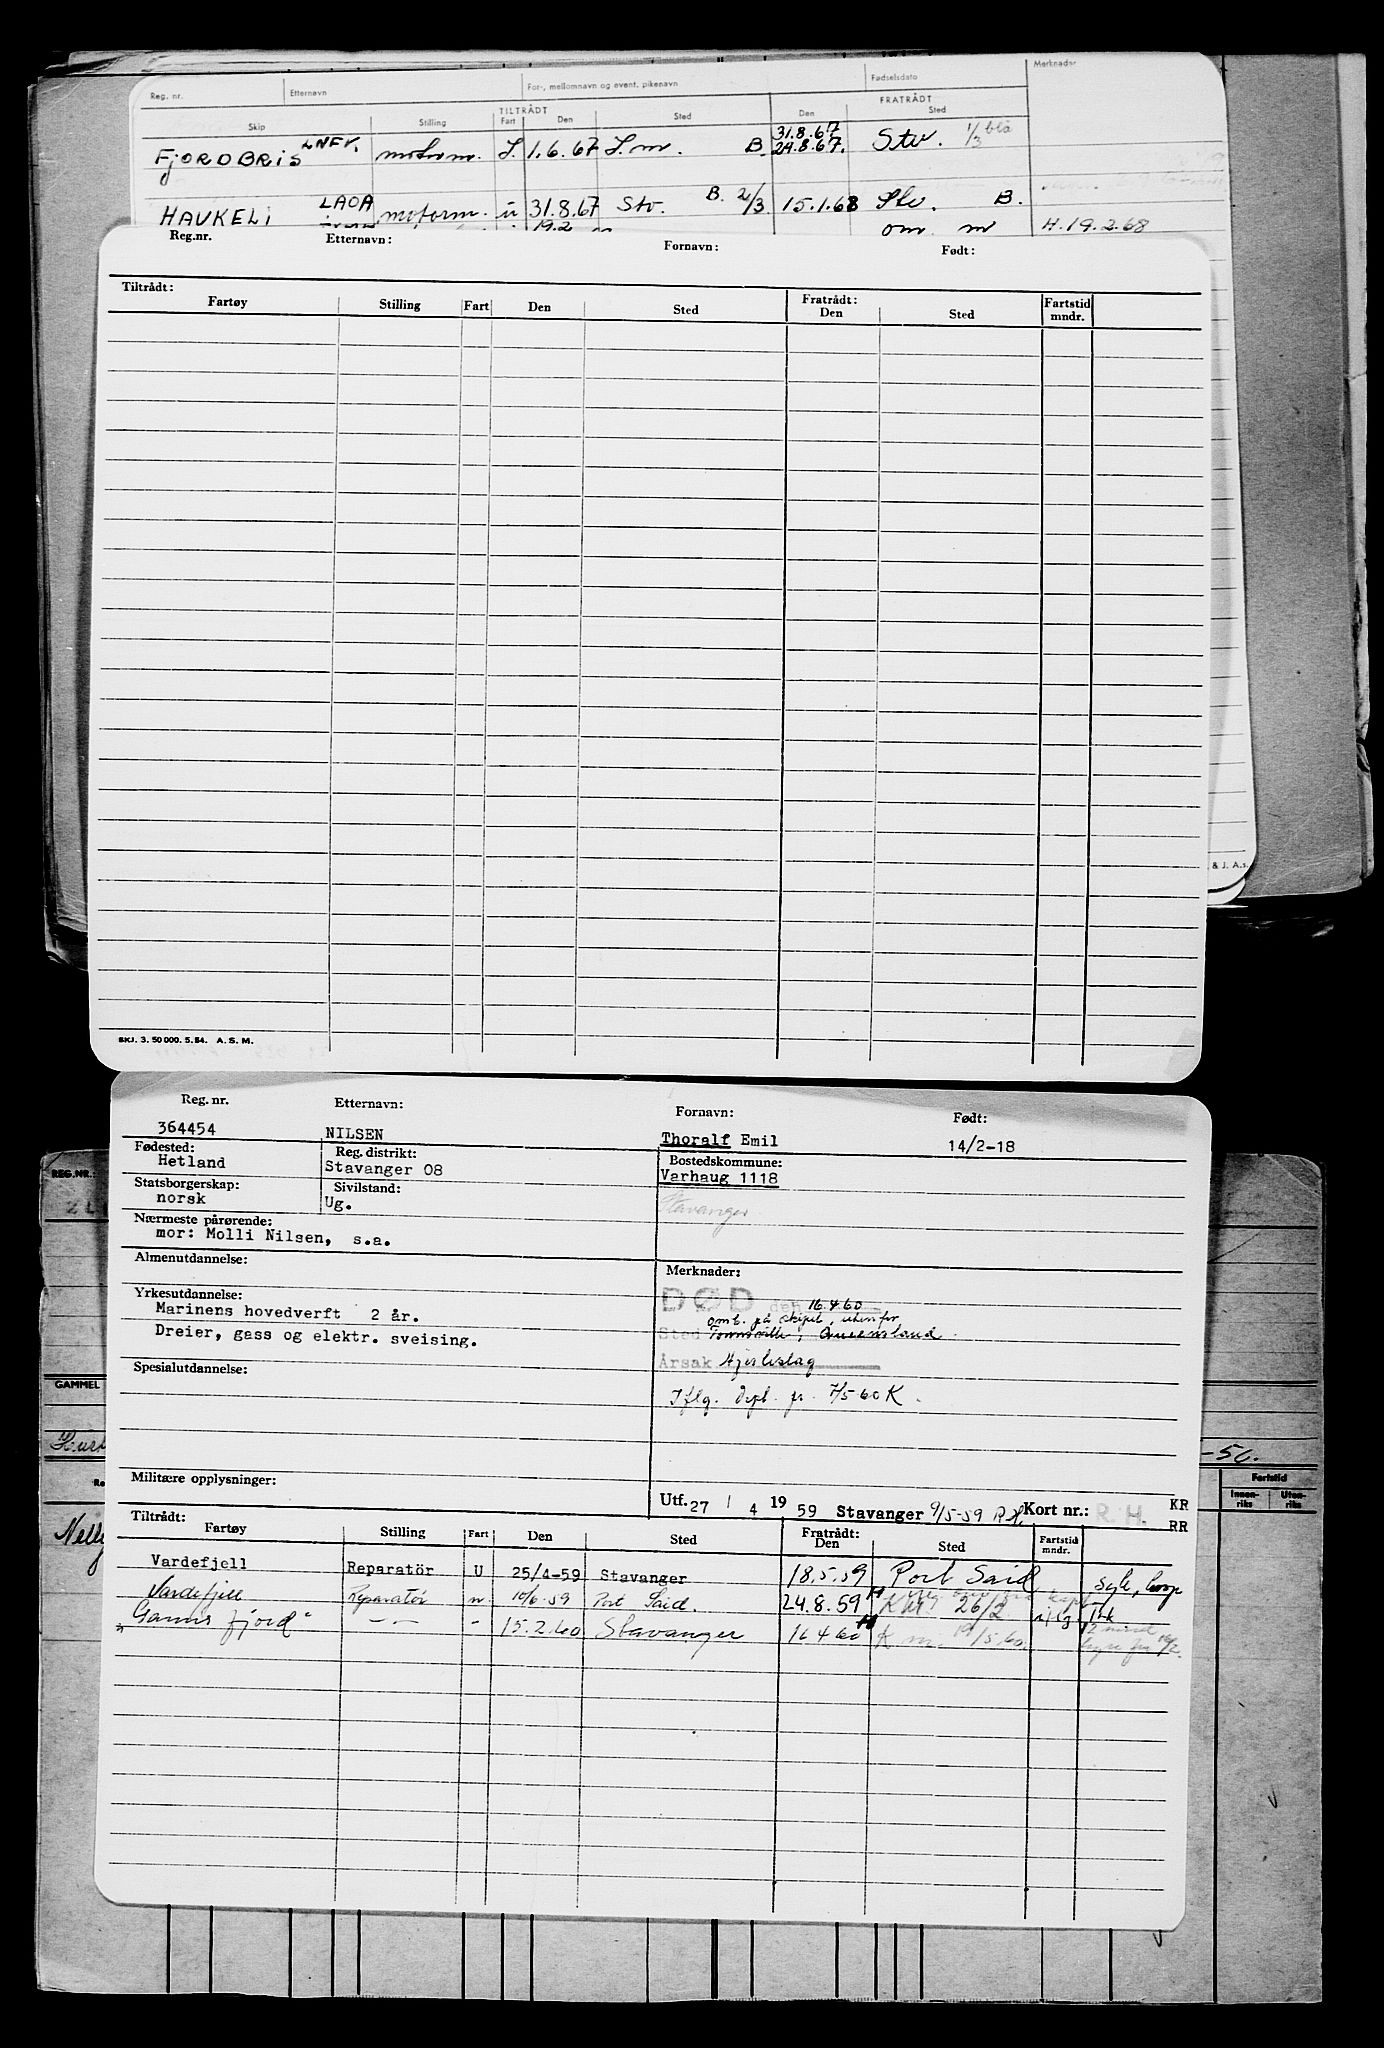 Reg. nr. Etternavn For-, mellomnavn og event. pikenavn Fødselsdato Merknader
TILTRÅDT FRATRÅDT
Skip Stilling Fart Den Sted Den Sted
FJORDBRIS LNFV. motorm. S. 1.6.67 S.m. B. 31.8.67 24.8.67. Stv. 1/3 blå
HAUKELI LAOA motorm. u 31.8.67 Stv. B. 2/3. 15.1.68 Stv. B.
19.2 om m H.19.2.68
Reg.nr. Etternavn: Fornavn: Født:
Tiltrådt: Fratrådt:
Fartøy Stilling Fart Den Sted Den Sted Fartstid mndr.
& J. A.s.
SKJ. 3. 50 000. 5. 54. A. S. M.
Reg. nr. Etternavn: Fornavn: Født:
364454 NILSEN Thoralf Emil 14/2-18
Fødested: Reg. distrikt: Bostedskommune:
Hetland Stavanger 08 Varhaug 1118
Statsborgerskap: Sivilstand: Stavanger
norsk Ug.
Nærmeste pårørende:
mor: Molli Nilsen, s.a.
Almenutdannelse: Merknader:
Yrkesutdannelse: DØD den 16.4.60
Marinens hovedverft 2 år. omb. på skipet, utenfor
Dreier, gass og elektr. sveising. Sted Townsville, Queensland.
Spesialutdannelse: Årsak Hjerteslag
Iflg. dpl. fr. 7/5 60 K.
Militære opplysninger:
Utf. 27 / 4 1959 Stavanger 9/5-59 Kort nr.: R. H. KR
RR
Tiltrådt: Fratrådt:
Fartøy Stilling Fart Den Sted Den Sted Fartstid mndr.
Vardefjell Reparatör U 25/4-59 Stavanger 18.5.59 Port Said syk,
Vardefjell Reparatör n. 10/6-59 Port Said. 24.8.59 26/2
fjord" -"- -"- 15.2.60 Stavanger 16 4 60 K m. 19/5.60.
REG.NR.
GAMMEL
-56.
Fartstid
Innenriks Utenriks